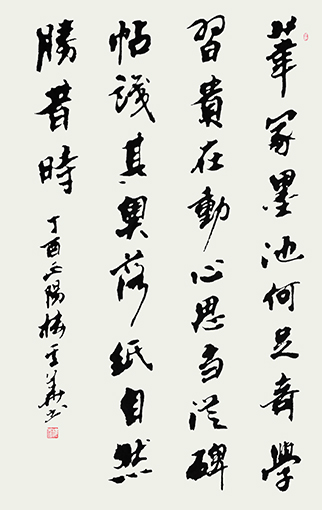 筆冢墨池何足奇學
習貴在動心思多從碑
帖識其奧落紙自然
勝昔時
丁酉 陽 書